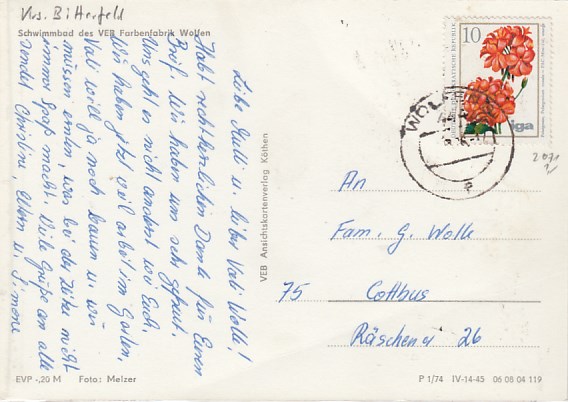 Krs. Bitterfeld
Schwimmbad des VEB Farbenfabrik Wolfen
Liebe Mutti u. lieber Vati Wolle!
Habt recht herzlichen Dank für Euren
Brief. Wir haben uns sehr gefreut.
Uns geht es nicht anders wie Euch,
Wir haben jetzt viel Arbeit im Garten,
Vati will ja noch bauen u. wir
müssen ernten, was bei der Hitze nicht
immer Spaß macht. Viele Grüße an alle
sendet Christine, Eltern u. Simone
VEB Ansichtskartenverlag Köthen
10
DEMOKRATISCHE REPUBLIK
iga
WOL
An
Fam. G. Wolle
75 Cottbus
Räschener 26
EVP -,20 M Foto: Melzer
P 1/74 IV-14-45 06 08 04 119